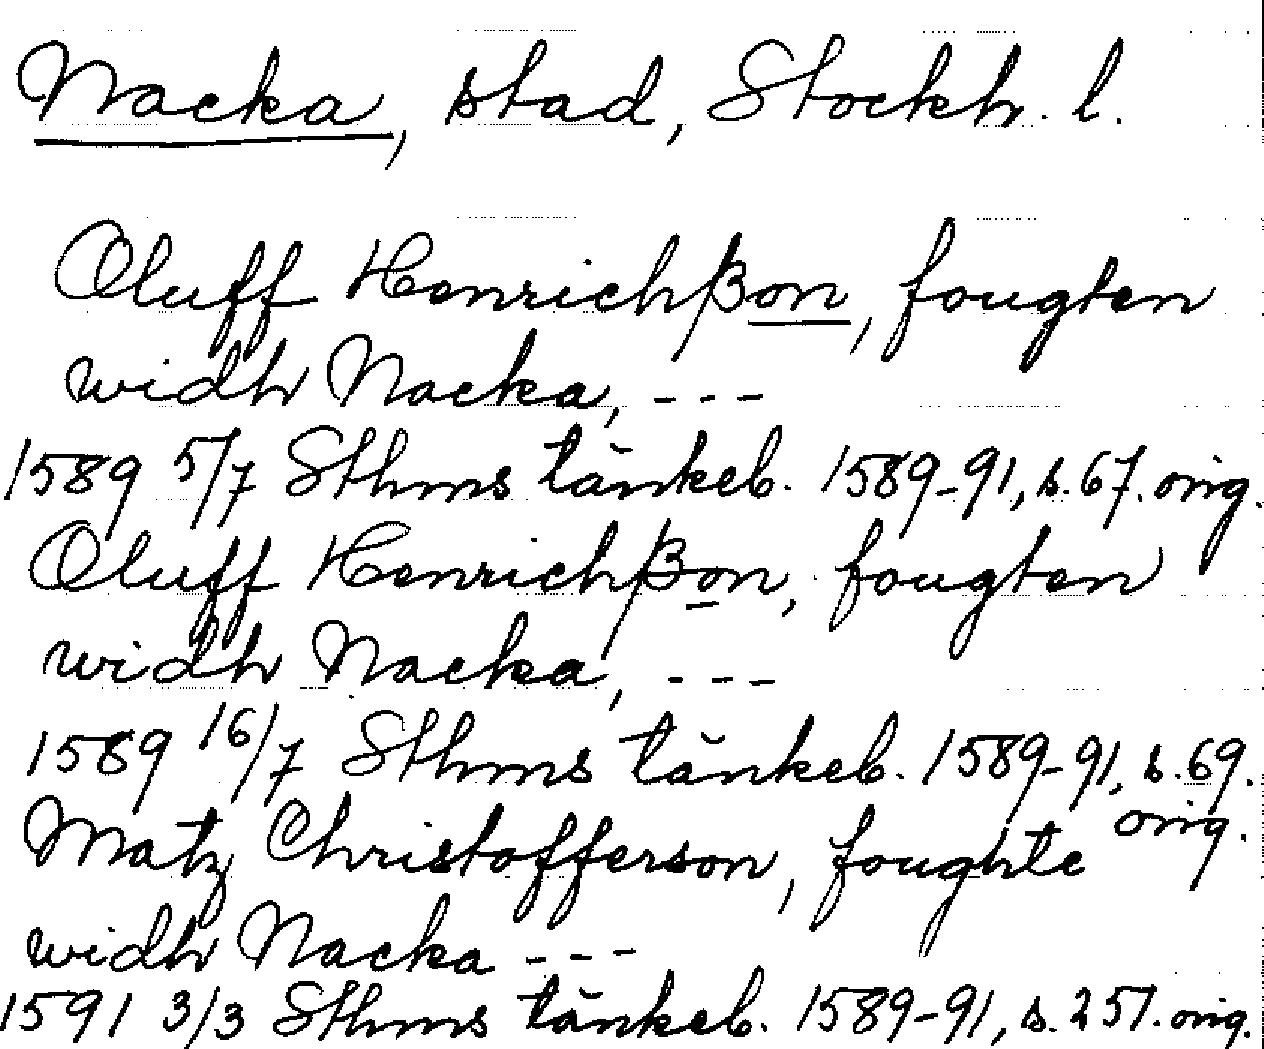 Nacka, stad, Stockh. l.
Oluff Henrichßon, fougten
widh Nacka, ---
1589 5/7 Sthms tänkeb. 1589-91, s. 67. orig.
Oluff Henrichßon, fougten
widh Nacka, ---
1589 16/7 Sthms tänkeb. 1589-91, s. 69.
orig.
Matz Christofferson, foughte
widh Nacka ---
1591 3/3 Sthms tänkeb. 1589-91, s. 257. orig.